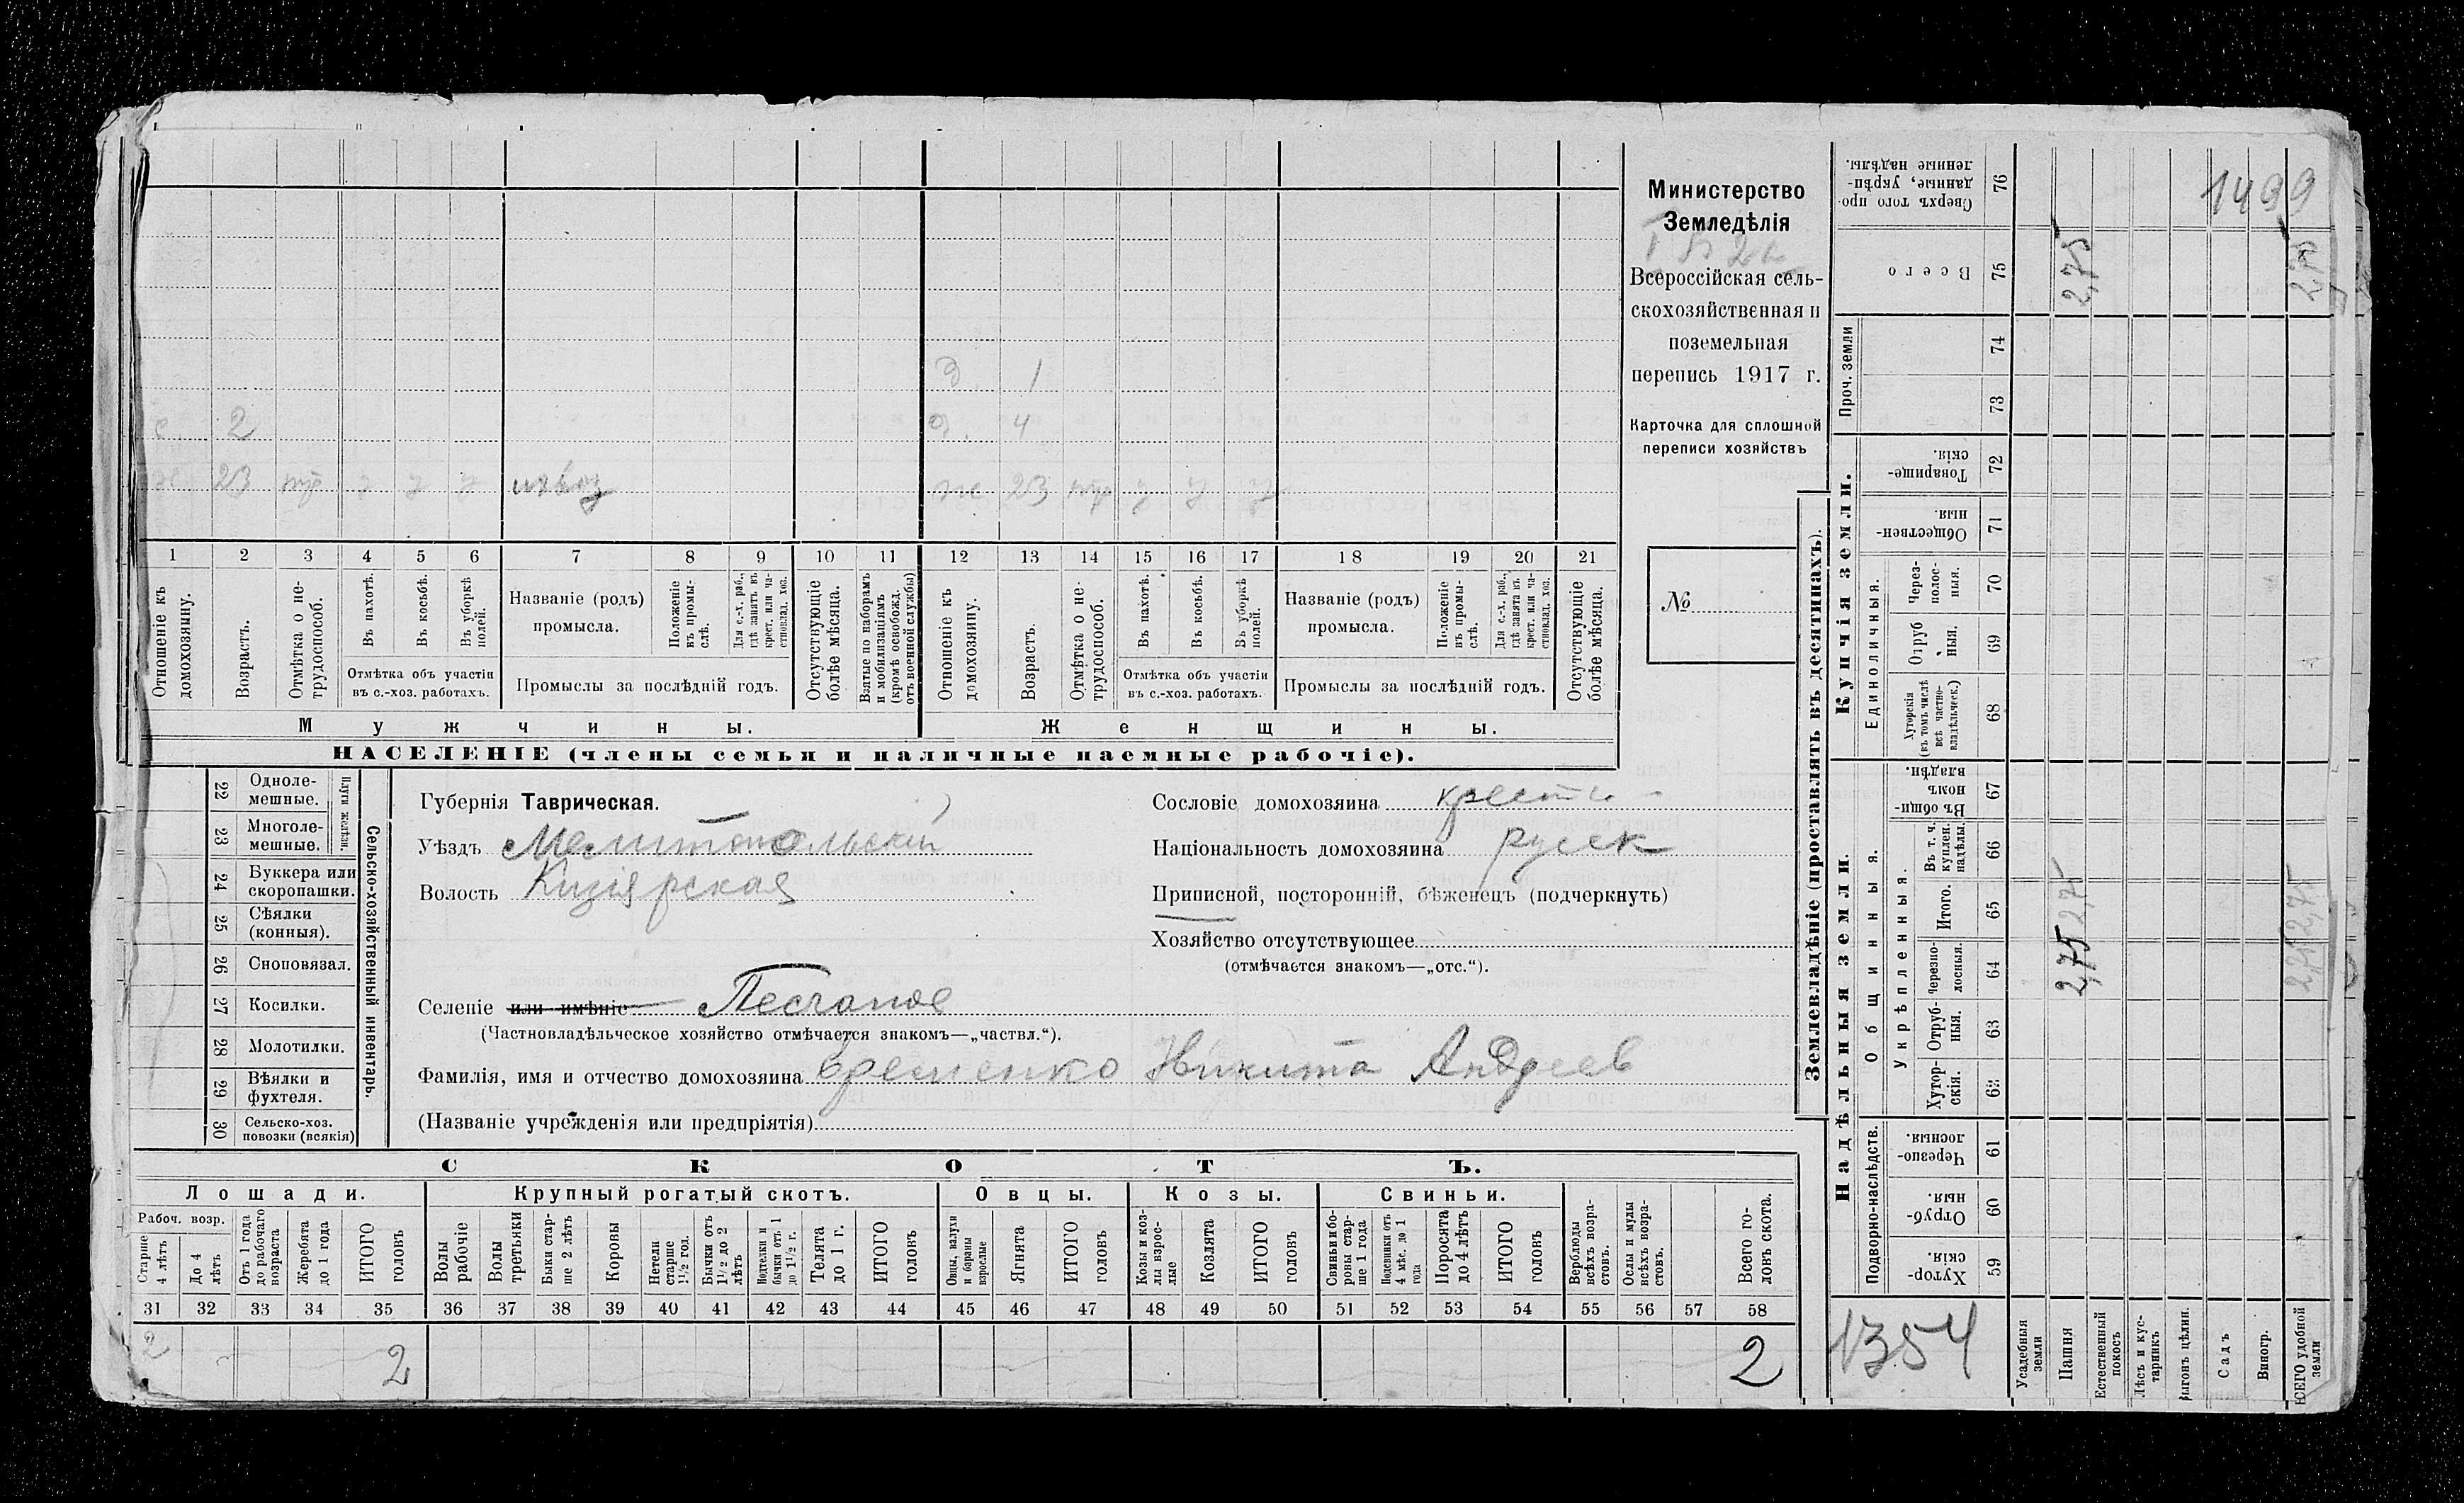 1499
Министерство
Земледѣлія
Всероссійская сель-
скохозяйственная и
поземельная
перепись 1917 г.
Карточка для сплошной
переписи хозяйствъ
№
Д 1
с 2 д. 4
х. 23 тр у у у извоз ж 23 тр у у у
1 2 3 4 5 6 7 8 9 10 11 12 13 14 15 16 17 18 19 20 21
Отношеніе къ домохозяину.
Возрастъ.
Отмѣтка о не-трудоспособ.
Въ пахотѣ.
Въ косьбѣ.
Въ уборкѣ полей.
Отмѣтка объ участіи
въ с.-хоз. работахъ.
Названіе (родъ)
промысла.
Положеніе въ промы-слѣ.
Для с.-х. раб., гдѣ занятъ въ крест. или ча-стновлад. хоз.
Промыслы за послѣдній годъ.
Отсутствующіе болѣе мѣсяца.
Взятые по наборамъ и мобилизаціямъ (кромѣ освобожд. отъ военной службы)
Отношеніе къ домохозяину.
Возрастъ.
Отмѣтка о не-трудоспособ.
Въ пахотѣ.
Въ косьбѣ.
Въ уборкѣ полей.
Отмѣтка объ участіи
въ с.-хоз. работахъ.
Названіе (родъ)
промысла.
Положеніе въ промы-слѣ.
Для с.-х. раб., гдѣ занята въ крест. или ча-стновлад. хоз.
Промыслы за послѣдній годъ.
Отсутствующіе болѣе мѣсяца.
Мужчины.
Женщины.
НАСЕЛЕНІЕ (члены семьи и наличные наемные рабочіе).
Сельско-хозяйственный инвентарь.
Плуги желѣзн.
22 Одноле-мешные.
23 Многоле-мешные.
24 Буккера или скоропашки.
25 Сѣялки (конныя).
26 Сноповязал.
27 Косилки.
28 Молотилки.
29 Вѣялки и фухтеля.
30 Сельско-хоз. повозки (всякія)
Губернія Таврическая.
Уѣздъ Мелитопольскій
Волость Кизіярская
Сословіе домохозяина крестьн
Національность домохозяина русск
Приписной, посторонній, бѣженецъ (подчеркнуть)
Хозяйство отсутствующее
(отмѣчается знакомъ—„отс.“).
Селеніе или имѣніе Песчаное
(Частновладѣльческое хозяйство отмѣчается знакомъ—„частвл.“).
Фамилія, имя и отчество домохозяина Еременко Никита Андреев
(Названіе учрежденія или предпріятія)
СКОТЪ.
Лошади. Крупный рогатый скотъ. Овцы. Козы. Свиньи.
Рабоч. возр.
Старше 4 лѣтъ
До 4 лѣтъ
Отъ 1 года до рабочаго возраста
Жеребята до 1 года
ИТОГО головъ
Волы рабочіе
Волы третьяки
Быки стар-ше 2 лѣтъ
Коровы
Нетели старше 1½ год.
Бычки отъ 1½ до 2 лѣтъ
Подтелки и бычки отъ 1 до 1½ г.
Телята до 1 г.
ИТОГО головъ
Овцы, валухи и бараны взрослые
Ягнята
ИТОГО головъ
Козы и коз-лы взрос-лые
Козлята
ИТОГО головъ
Свиньи и бо-ровы стар-ше 1 года
Подсвинки отъ 4 мѣс. до 1 года
Поросята до 4 лѣтъ
ИТОГО головъ
Верблюды всѣхъ возра-стовъ.
Ослы и мулы всѣхъ возра-стовъ.
Всего го-ловъ скота.
31 32 33 34 35 36 37 38 39 40 41 42 43 44 45 46 47 48 49 50 51 52 53 54 55 56 57 58
2 2 2
Землевладѣніе (проставлять въ десятинахъ).
Купчія земли.
Надѣльныя земли.
Сверхъ того про-данные, укрѣп-ленные надѣлы. 76
Всего 75 2,75 2,75
Проч. земли 74
73
Товарище-скія. 72
Обществен-ныя. 71
Единоличныя.
Через-полос-ныя. 70
Отруб ныя. 69
Хуторскія (въ томъ числѣ всѣ частно-владѣльческ.) 68
Общинныя.
Въ общин-номъ владѣн. 67
Укрѣпленныя.
Въ т. ч. куплен. надѣлы. 66
Итого. 65 2,75 2,75
Черезпо-лосныя. 64 2,75 2,75
Отруб-ныя. 63
Хутор-скія. 62
Подворно-наслѣдств.
Черезпо-лосныя. 61
Отруб-ныя. 60
Хутор-скія. 59
1354
Усадебныя земли
Пашня
Естественный покосъ
Лѣсъ и кус-тарникъ
Выгонъ цѣлин.
Садъ
Виногр.
ВСЕГО удобной земли